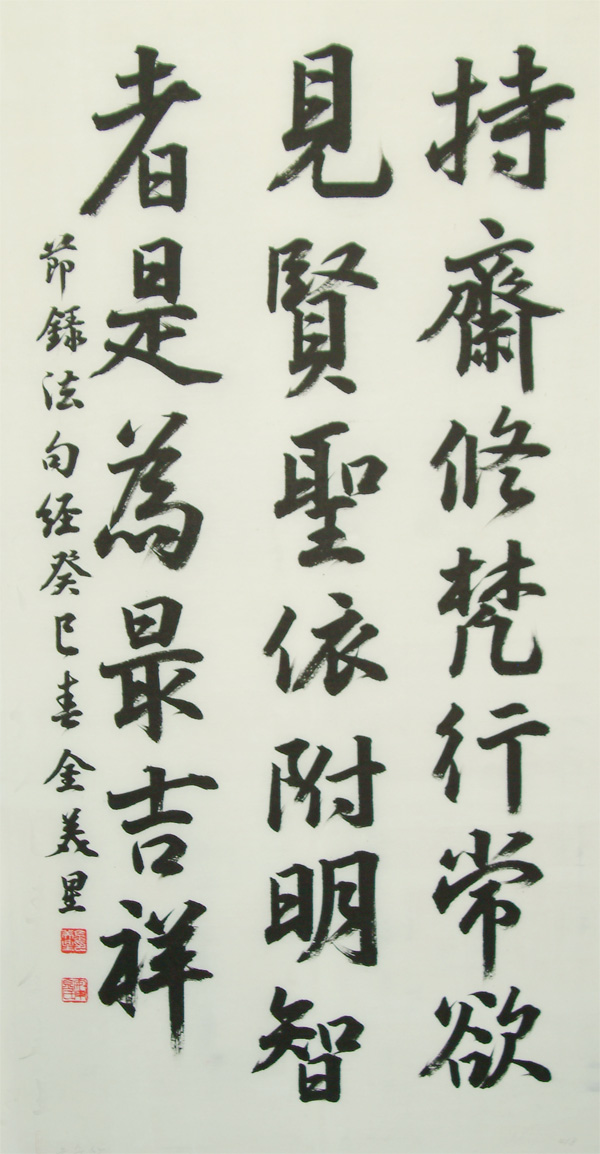 持齋修梵行常欲
見賢聖依附明智
者是為最吉祥
節録法句経癸巳春金美星